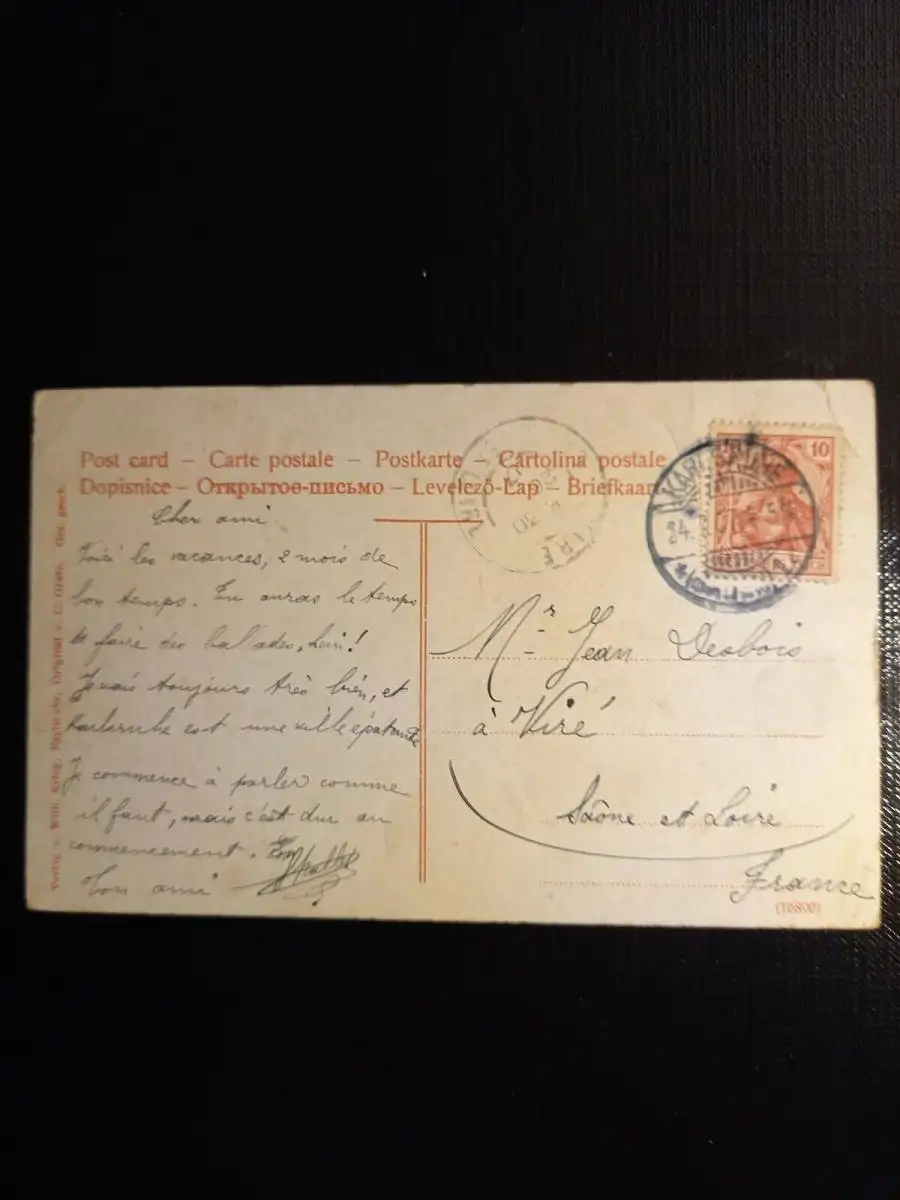 Post card – Carte postale – Postkarte – Cartolina postale
Dopisnice – Открытое-письмо – Levelező-Lap – Briefkaart
Cher ami
Voici les vacances, 2 mois de
bon temps. Tu auras le temps
de faire des ballades, hein!
Je vais toujours très bien, et
Karlsruhe est une ville épatante
Je commence à parler comme
il faut, mais c'est dur au
commencement.
Ton ami
Mr Jean Desbois
à Viré
Saône et Loire
France
(16890)
10
KARLSRUHE
24.
VIRE
Verlag v. Wilh. Kreg, Karlsruhe, Original v. C. Grate. Ges. gesch.